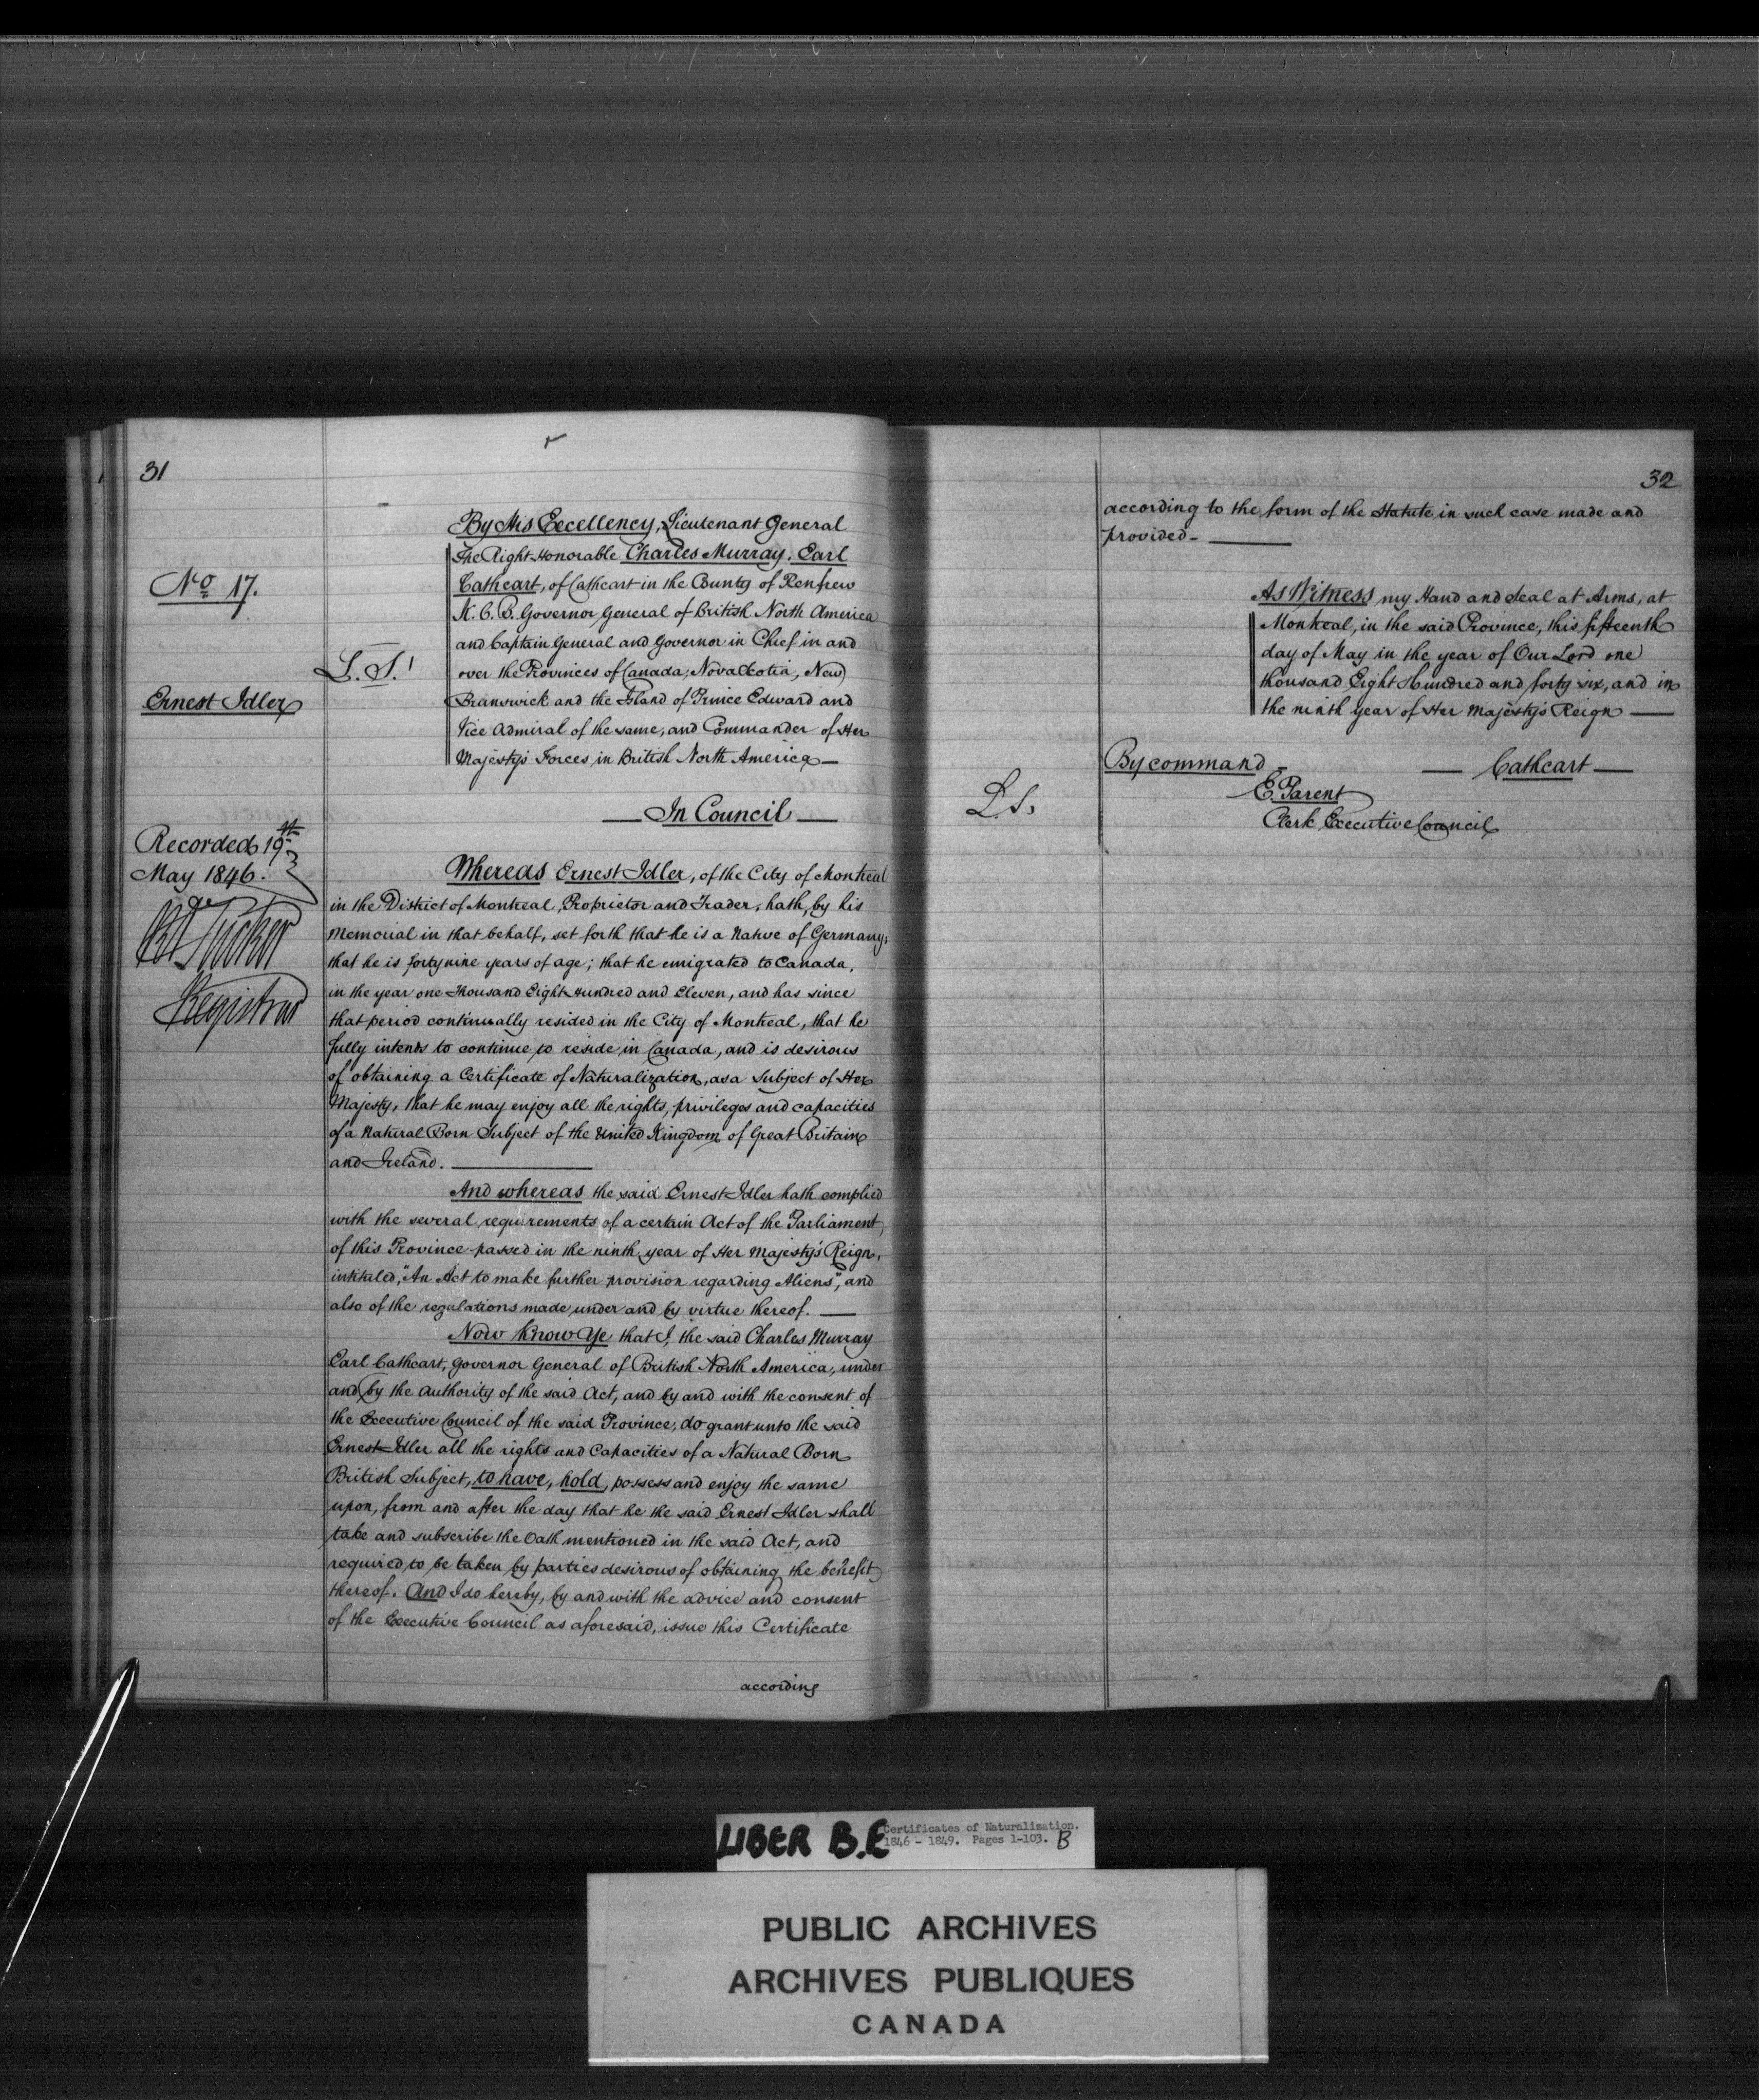 31
No 17.
Ernest Idler
Recorded 19th
May 1846.
RA Tucker
Registrar
L. S.
By His Excellency, Lieutenant General
The Right Honorable Charles Murray, Earl
Cathcart, of Cathcart in the County of Renfrew
K. C. B. Governor General of British North America
and Captain General and Governor in Chief in and
over the Provinces of Canada, Nova Scotia, New
Brunswick and the Island of Prince Edward and
Vice Admiral of the same, and Commander of Her
Majesty's Forces in British North America —
— In Council —
Whereas Ernest Idler, of the City of Montreal
in the District of Montreal, Proprietor and Trader, hath, by his
Memorial in that behalf, set forth that he is a Native of Germany,
that he is forty nine years of age; that he emigrated to Canada,
in the year one Thousand Eight Hundred and Eleven, and has since
that period continually resided in the City of Montreal, that he
fully intends to continue to reside in Canada, and is desirous
of obtaining a Certificate of Naturalization, as a Subject of Her
Majesty, that he may enjoy all the rights, privileges and capacities
of a Natural Born Subject of the United Kingdom of Great Britain
and Ireland. —
And whereas the said Ernest Idler hath complied
with the several requirements of a certain Act of the Parliament
of this Province passed in the ninth year of Her Majesty's Reign,
intituled, "An Act to make further provision regarding Aliens", and
also of the regulations made under and by virtue thereof. —
Now Know Ye that I, the said Charles Murray
Earl Cathcart, Governor General of British North America, under
and by the authority of the said Act, and by and with the consent of
the Executive Council of the said Province, do grant unto the said
Ernest Idler all the rights and Capacities of a Natural Born
British Subject, to have, hold, possess and enjoy the same
upon, from and after the day that he the said Ernest Idler shall
take and subscribe the Oath mentioned in the said Act, and
required to be taken by parties desirous of obtaining the benefit
thereof. And I do hereby, by and with the advice and consent
of the Executive Council as aforesaid, issue this Certificate
according
32
according to the form of the Statute in such case made and
provided. —
As Witness my Hand and Seal at Arms, at
Montreal, in the said Province, this fifteenth
day of May in the year of Our Lord one
thousand Eight Hundred and forty six, and in
the ninth year of Her Majesty's Reign —
By command — — Cathcart —
L. S.
E. Parent
Clerk Executive Council
LIBER B.E
Certificates of Naturalization.
1846 - 1849. Pages 1-103. B
PUBLIC ARCHIVES
ARCHIVES PUBLIQUES
CANADA